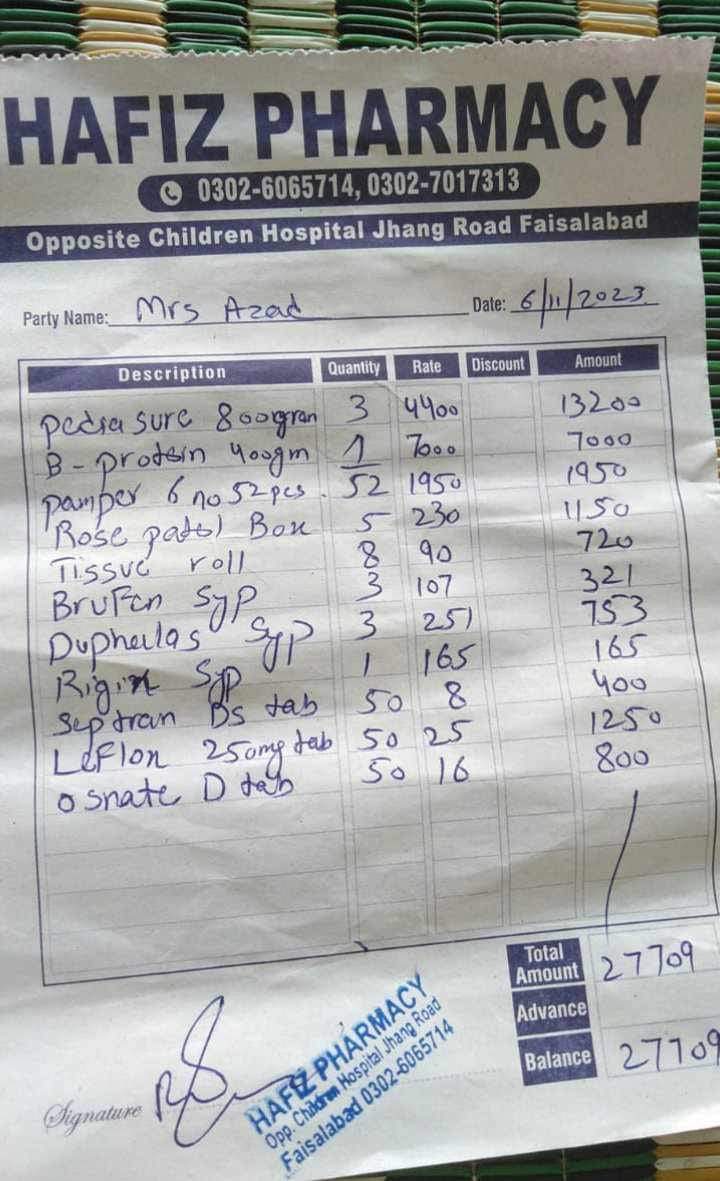 HAFIZ PHARMACY
0302-6065714, 0302-7017313
Opposite Children Hospital Jhang Road Faisalabad
Party Name: Mrs Azad Date: 6/11/2023
Description Quantity Rate Discount Amount
pedia sure 800gram 3 4400 13200
B-protein 400gm 1 7000 7000
pamper 6 no 52pcs. 52 1950 1950
Rose patel Box 5 230 1150
Tissue roll 8 90 720
Brufen syp 3 107 321
Duphalas syp 3 251 753
Rigix Syp 1 165 165
septran Ds tab 50 8 400
Leflon 250mg tab 50 25 1250
osnate D tab 50 16 800
Total Amount 27709
Advance
Balance 27709
Signature
HAFIZ PHARMACY
Opp. Children Hospital Jhang Road
Faisalabad 0302-6065714